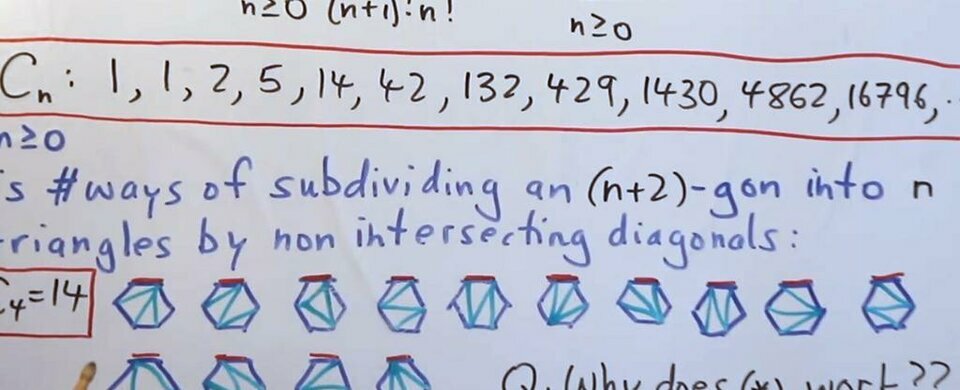 n≥0 (n+1)!n!
n≥0
Cn: 1, 1, 2, 5, 14, 42, 132, 429, 1430, 4862, 16796, ..
n≥0
s #ways of subdividing an (n+2)-gon into n
riangles by non intersecting diagonals:
C4=14
Q. Why does (*) work??